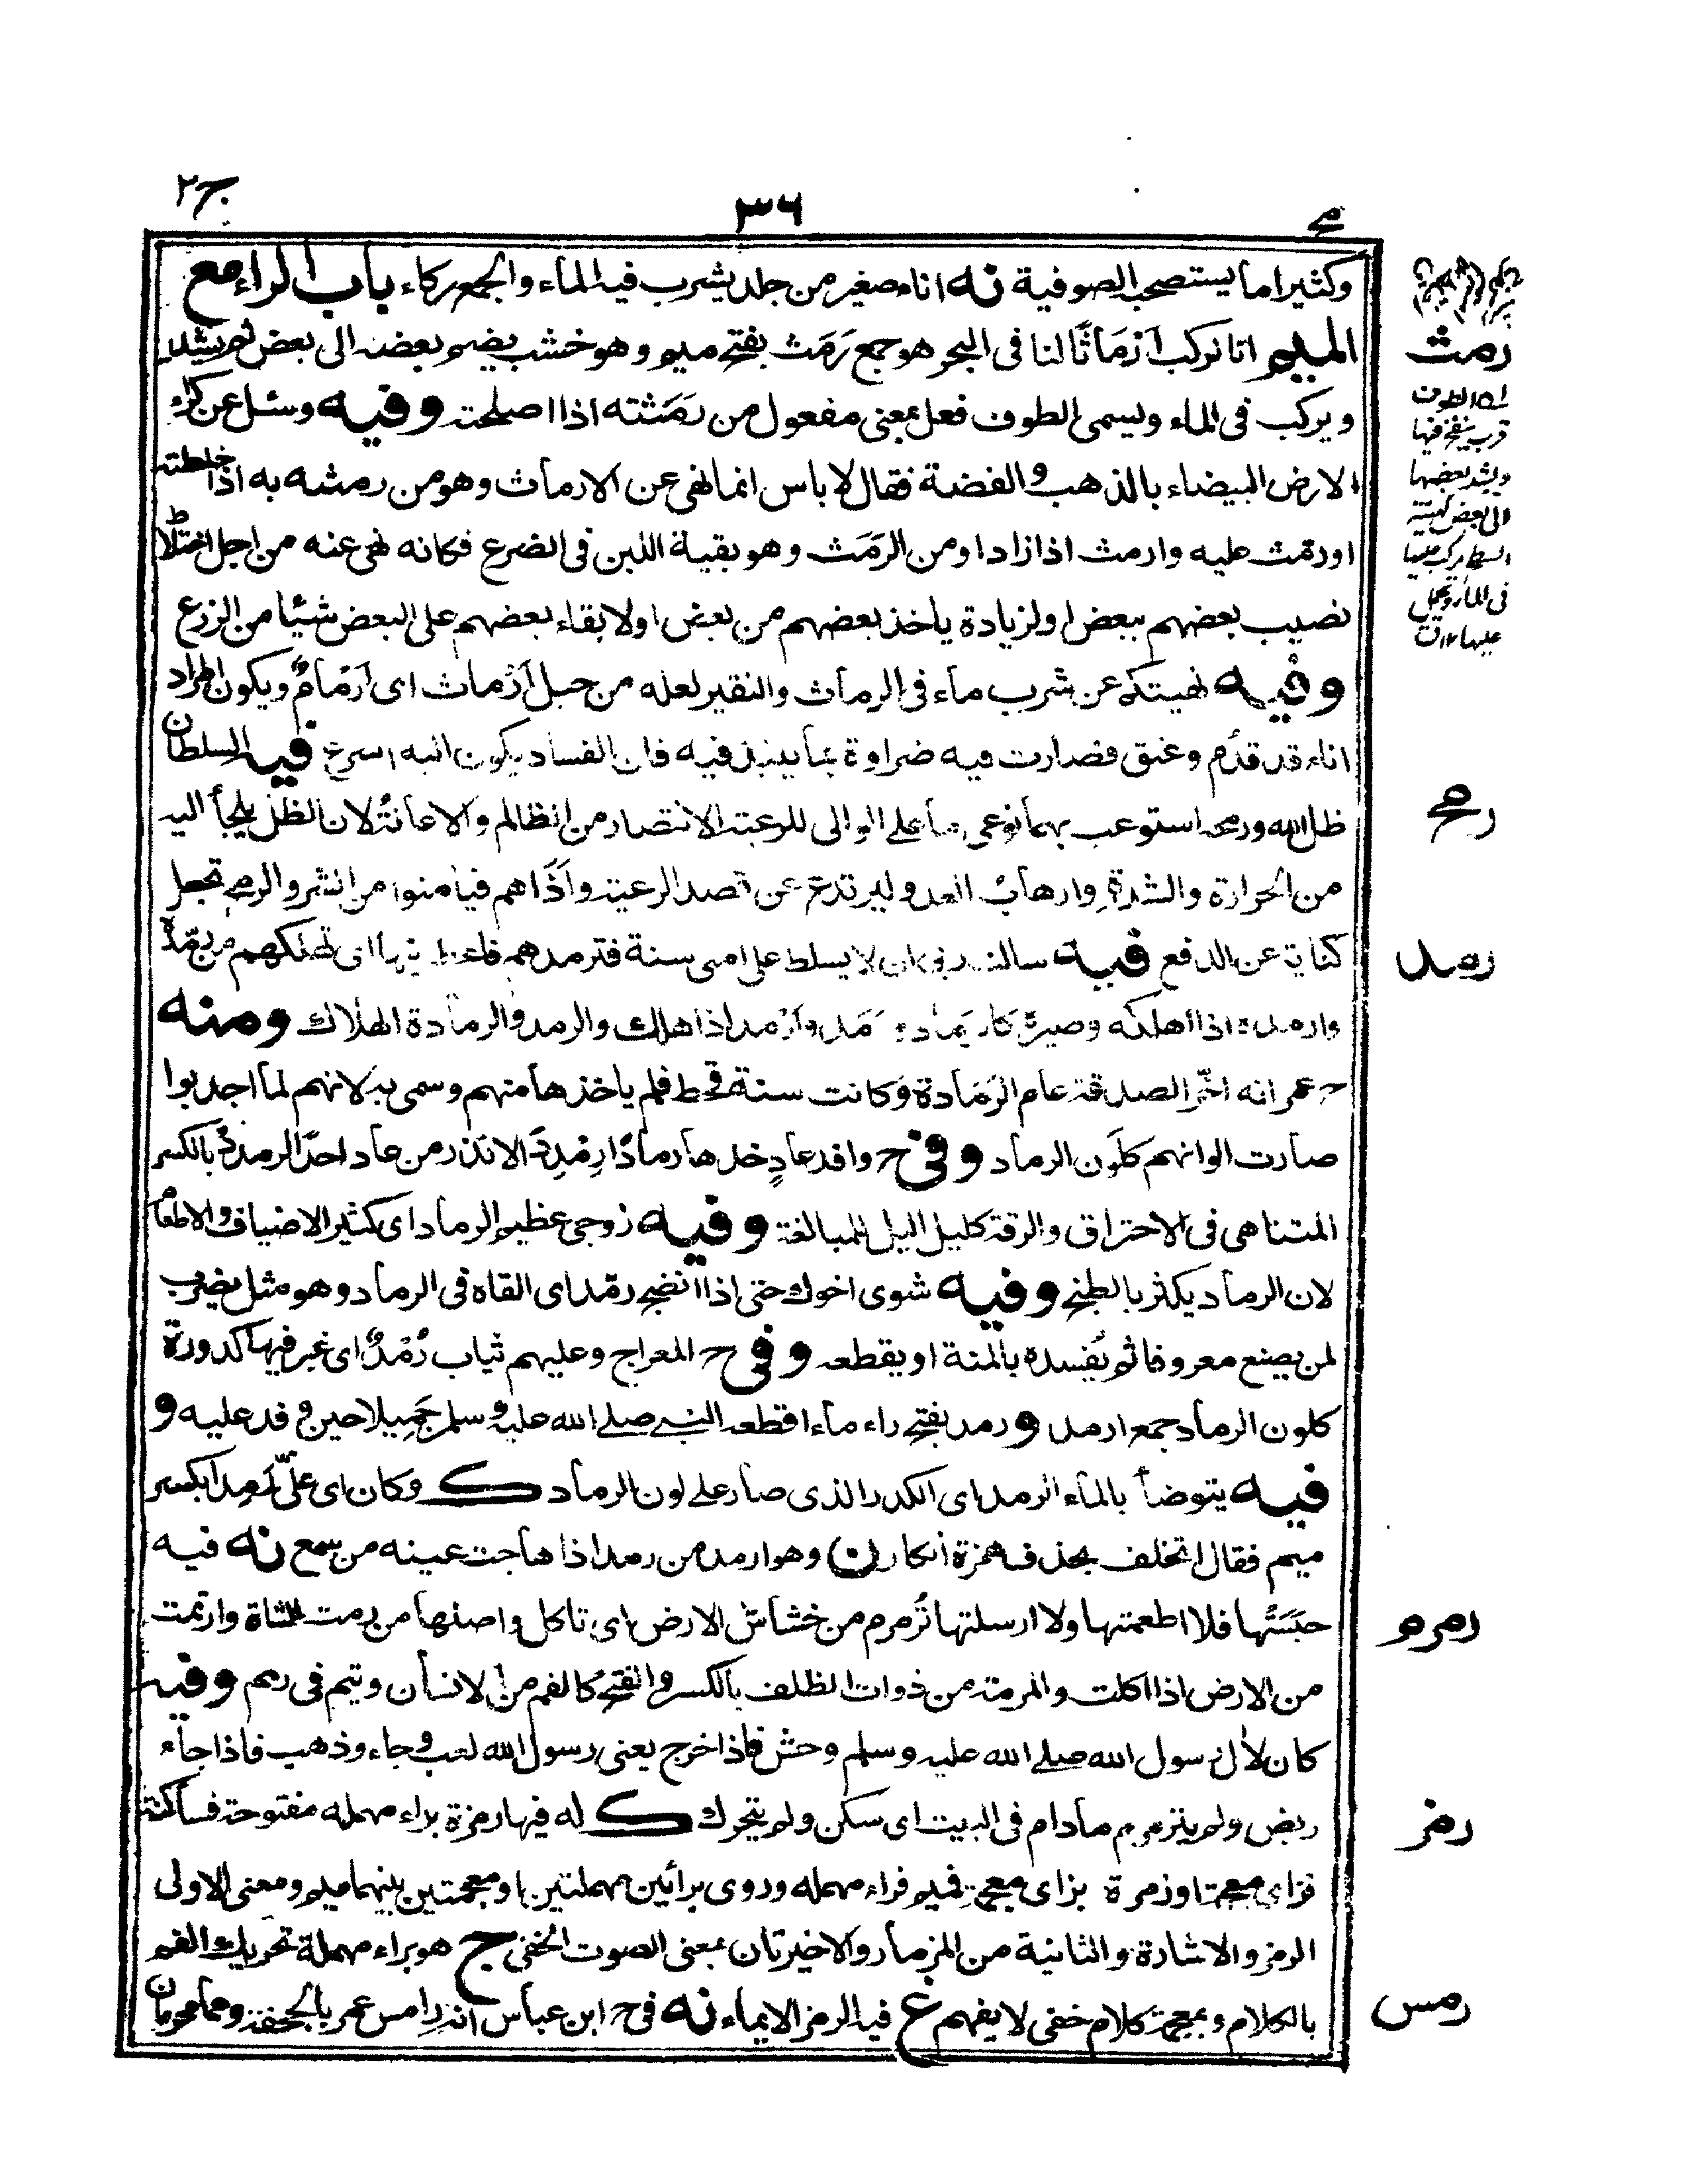 ج ٢
٣٦
وكثيرا ما يستصحبه الصوفية نه اناء صغير من جلد يشرب فيه الماء والجمع ركاء باب الراء مع
الميم انا نركب أرْمَاثًا لنا فى البحر هو جمع رَمَث بفتح ميم وهو خشب يضم بعضه الى بعض ثم يشد
ويركب فى الماء ويسمى الطوف فعل بمعنى مفعول من رَمَثته اذا اصلحته وفيه وسئل عن كراء
الارض البيضاء بالذهب والفضة فقال لا باس انما نهى عن الارماث وهو من رمثه به اذا خلطته
او رمّث عليه وارمث اذا زاد او من الرَمَث وهو بقية اللبن فى الضرع فكانه نهى عنه من اجل اختلاط
نصيب بعضهم ببعض او لزيادة ياخذ بعضهم من بعض او لابقاء بعضهم على البعض شيئا من الزرع
وفيه نهيتكم عن شرب ماء فى الرماث والنقير لعله من حبل أرْماث اى أرْمامٌ ويكون المراد
اناء قد قدُم وعتق فصارت فيه ضراوة بما ينبذ فيه فان الفساد يكون اليه اسرع فيه السلطان
ظل الله ورمحه استوعب بهما نوعى ما على الوالى للرعية الانتصار من الظالم والاعانة لان الظل يلجأ اليه
من الحرارة والشدة وارهاب العدو ليرتدع عن قصد الرعية وأذاهم فيامنوا من الشر والرمح تجعل
كناية عن الدفع فيه سالت ربى ان لا يسلط على امتى سنة فترمدهم فاعطانيها اى تهلكهم من رمّده
وارمده اذا اهلكه وصيره كالرماد ورَمَد وأرْمد اذا هلك والرمد والرمادة الهلاك ومنه
ح عمر انه اخّر الصدقة عام الرَمَادة وكانت سنة قحط فلم ياخذها منهم وسمى به لانهم لما اجدبوا
صارت الوانهم كلَون الرماد وفى ح وافد عادٍ خذها رمادًا رِمْدِدًا لا تذر من عاد احدًا الرمدد بالكسر
المتناهى فى الاحتراق والرقة كليل اليل للمبالغة وفيه زوجى عظيم الرماد اى كثير الاضياف والاطعام
لان الرماد يكثر بالطبخ وفيه شوى اخوك حتى اذا انضج رمّد اى القاه فى الرماد وهو مثل يضرب
لمن يصنع معروفا ثم يُفسده بالمنة او يقطعه وفى ح المعراج وعليهم ثياب رُمْدٌ اى غبر فيها كدورة
كلون الرماد جمع ارمد و رمد بفتح راء ماء اقطعه النبى صلى الله عليه وسلم جَمِيلا حين وفد عليه و
فيه يتوضأ بالماء الرمد اى الكدر الذى صار على لون الرماد ك وكان اى علىّ رَمِدا بكسر
ميم فقال اتخلف بحذف همزة انكار (ن) وهو ارمد من رمد اذا هاجت عينه من سمع نه فيه
حبَسَتْها فلا اطعمتها ولا ارسلتها تُرمرم من خشاش الارض اى تاكل واصلها من رمت الشاة وارتمت
من الارض اذا اكلت والمرمة من ذوات الظلف بالكسر والفتح كالفم من الانسان ويتم فى رمم وفيه
كان لاٰل رسول الله صلى الله عليه وسلم وحش فاذا خرج يعنى رسول الله لعب وجاء وذهب فاذا جاء
ربض ولم يترمرم مادام فى البيت اى سكن ولم يتحرك ك له فيها رمزة براء مهمله مفتوحة فساكنة
فزاى معجمة او زمرة بزاى معجمة فميم فراء مهمله وروى برائين مهملتين او معجمتين بينهما ميم ومعنى الاولى
الرمز والاشارة والثانية من المزمار والاخيرتان بمعنى الصوت الخفى ج هو براء مهملة تحريك الفم
بالكلام وبمعجمة كلام خفى لا يفهم غ فيه الرمز الايماء نه فى ح ابن عباس انه رامس عمر بالجحفة وهما محرمان
رمث
اى الطوف
قرب ينفخ فيها
ويشد بعضها
الى بعض كهيئة
السطح يركب عليها
فى الماء ويحمل
عليها
رمح
رمد
رمرم
رمز
رمس